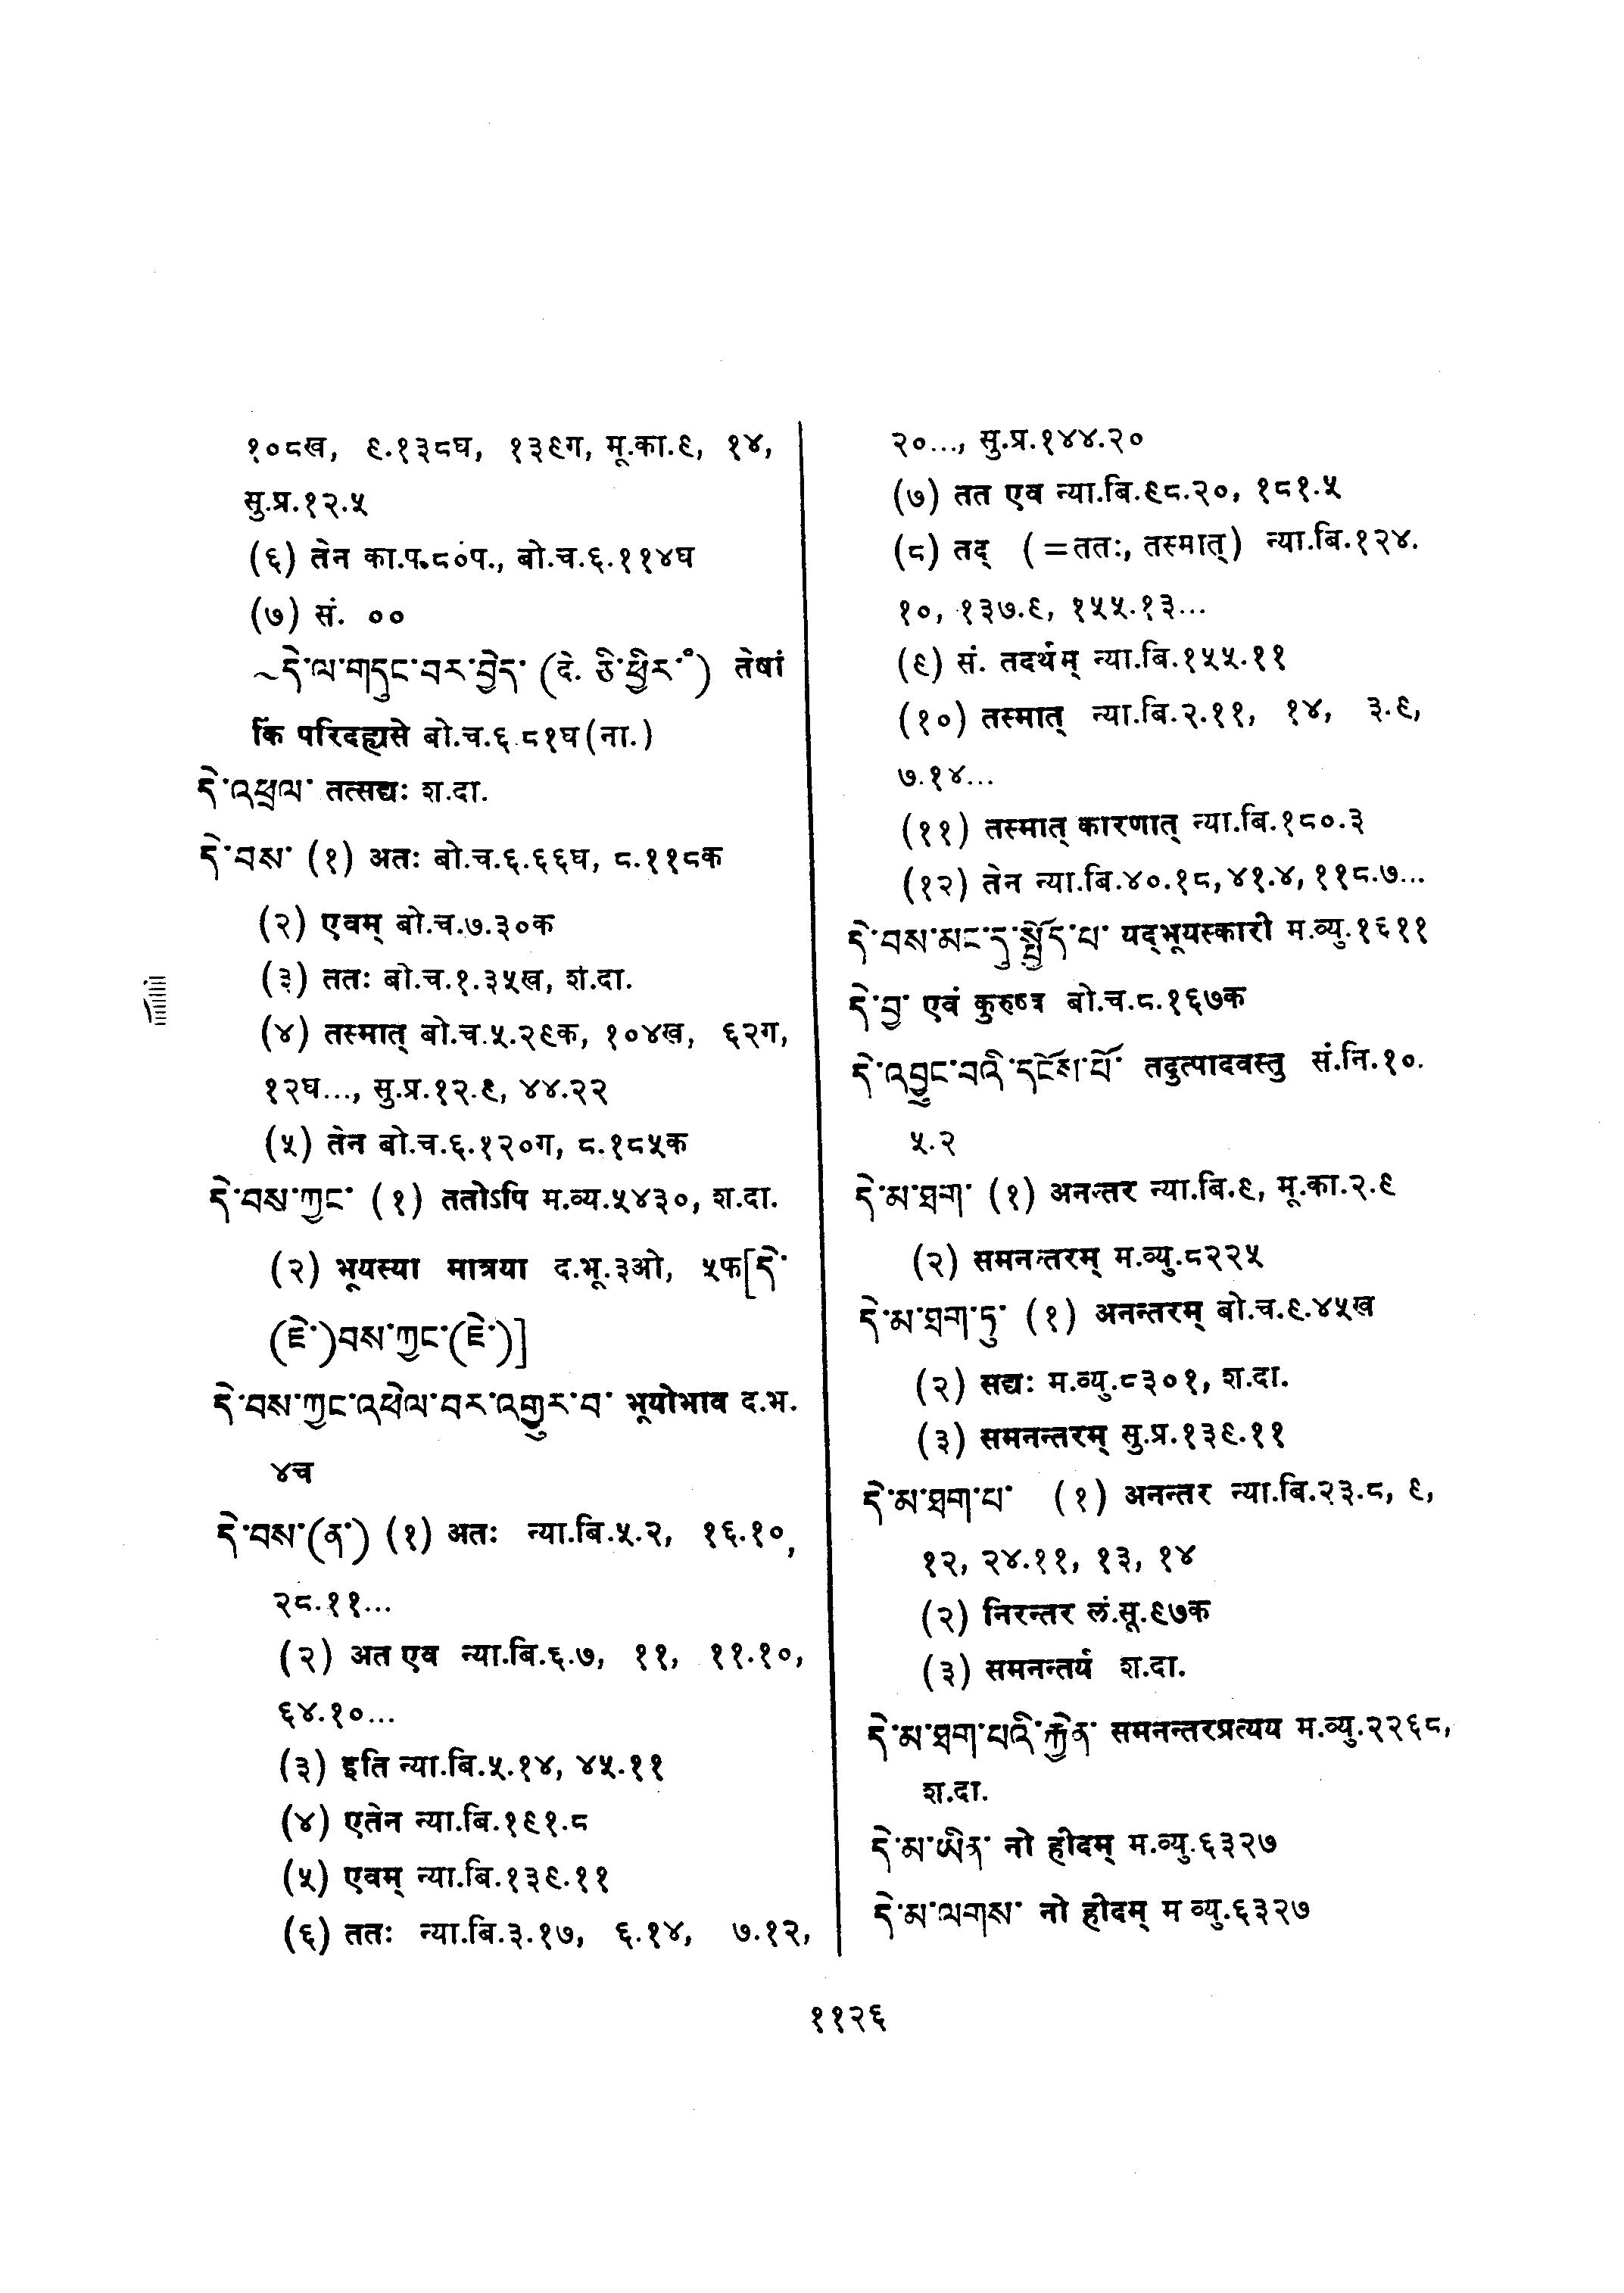 १०८ख, ९.१३८घ, १३९ग, मू.का.९, १४,
सु.प्र.१२.५
(६) तेन का.प.८०प., बो.च.६.११४घ
(७) सं. ००
~དེ་ལ་གདུང་བར་བྱེད་ (दे. ཅི་ཕྱིར་ॅ) तेषां
किं परिदह्यसे बो.च.६.८१घ(ना.)
དེ་འཕྲལ་ तत्सद्यः श.दा.
དེ་བས་ (१) अतः बो.च.६.६६घ, ८.११८क
(२) एवम् बो.च.७.३०क
(३) ततः बो.च.१.३५ख, श.दा.
(४) तस्मात् बो.च.५.२९क, १०४ख, ६२ग,
१२घ..., सु.प्र.१२.९, ४४.२२
(५) तेन बो.च.६.१२०ग, ८.१८५क
དེ་བས་ཀྱང་ (१) ततोऽपि म.व्य.५४३०, श.दा.
(२) भूयस्या मात्रया द.भू.३ओ, ५फ[དེ་
(ཇེ་)བས་ཀྱང་(ཇེ་)]
དེ་བས་ཀྱང་འཕེལ་བར་འགྱུར་བ་ भूयोभाव द.भ.
४च
དེ་བས་(ན་) (१) अतः न्या.बि.५.२, १६.१०,
२८.११...
(२) अत एव न्या.बि.६.७, ११, ११.१०,
६४.१०...
(३) इति न्या.बि.५.१४, ४५.११
(४) एतेन न्या.बि.१९१.८
(५) एवम् न्या.बि.१३९.११
(६) ततः न्या.बि.३.१७, ६.१४, ७.१२,
२०..., सु.प्र.१४४.२०
(७) तत एव न्या.बि.९८.२०, १८१.५
(८) तद् (=ततः, तस्मात्) न्या.बि.१२४.
१०, १३७.९, १५५.१३...
(९) सं. तदर्थम् न्या.बि.१५५.११
(१०) तस्मात् न्या.बि.२.११, १४, ३.९,
७.१४...
(११) तस्मात् कारणात् न्या.बि.१८०.३
(१२) तेन न्या.बि.४०.१८,४१.४,११८.७...
དེ་བས་མང་དུ་སྤྱོད་པ་ यद्भूयस्कारी म.व्यु.१६११
དེ་བྱ་ एवं कुरुष्व बो.च.८.१६७क
དེ་འབྱུང་བའི་དངོས་པོ་ तदुत्पादवस्तु सं.नि.१०.
५.२
དེ་མ་ཐག་ (१) अनन्तर न्या.बि.९, मू.का.२.९
(२) समनन्तरम् म.व्यु.८२२५
དེ་མ་ཐག་ཏུ་ (१) अनन्तरम् बो.च.९.४५ख
(२) सद्यः म.व्यु.८३०१, श.दा.
(३) समनन्तरम् सु.प्र.१३९.११
དེ་མ་ཐག་པ་ (१) अनन्तर न्या.बि.२३.८, ९,
१२, २४.११, १३, १४
(२) निरन्तर लं.सू.९७क
(३) समनन्तर्य श.दा.
དེ་མ་ཐག་པའི་རྐྱེན་ समनन्तरप्रत्यय म.व्यु.२२६८,
श.दा.
དེ་མ་ཡིན་ नो हीदम् म.व्यु.६३२७
དེ་མ་ལགས་ नो हीदम् म व्यु.६३२७
११२६